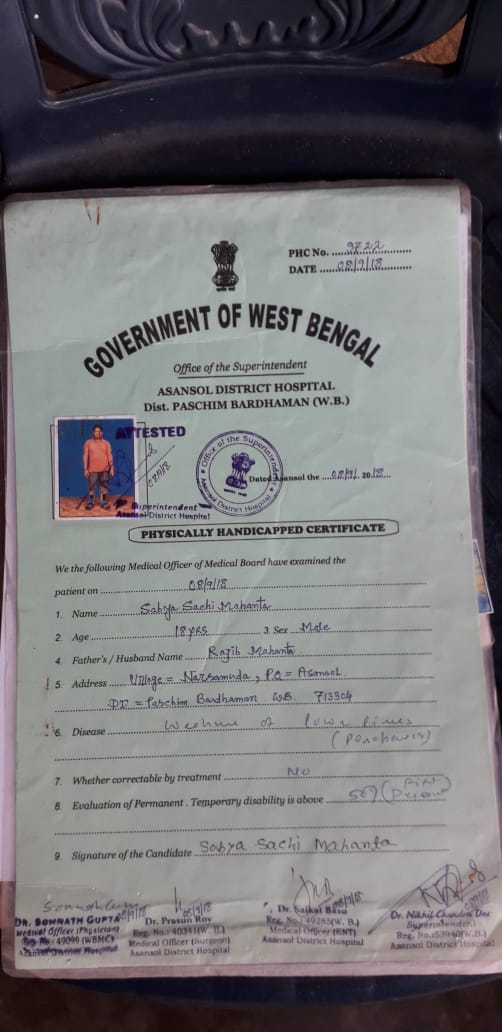 PHC No. ....9722....
DATE ....08/9/18....
GOVERNMENT OF WEST BENGAL
Office of the Superintendent
ASANSOL DISTRICT HOSPITAL
Dist. PASCHIM BARDHAMAN (W.B.)
ATTESTED
08/9/18
Superintendent
Asansol District Hospital
Office of the Superintendent
Asansol District Hospital
Dated Asansol the ....08/9/.... 2018....
PHYSICALLY HANDICAPPED CERTIFICATE
We the following Medical Officer of Medical Board have examined the
patient on ....08/9/18....
1. Name ....Sabya Sachi Mahanta....
2. Age ....18 YRS.... 3. Sex ....Male....
4. Father's / Husband Name ....Rajib Mahanta....
5. Address ....Village = Narsamuda, PO = Asansol....
DT = Paschim Bardhaman WB. 713304
6. Disease ....of lower limbs
7. Whether correctable by treatment ....NO....
8. Evaluation of Permanent . Temporary disability is above ....50%
9. Signature of the Candidate ....Sabya Sachi Mahanta....
08/9/18
DR. SOMNATH GUPTA
Medical Officer (Physician)
Reg. No.: 49099 (WBMC)
Asansol District Hospital
08/9/18
Dr. Prasun Roy
Reg. No.: 40341(W. B.)
Medical Officer (Surgeon)
Asansol District Hospital
08/9/18
Dr. Saikat Basu
Reg. No.: 49285(W. B.)
Medical Officer (ENT)
Asansol District Hospital
Dr. Nikhil Chandra Das
Superintendent
(W.B.)
Asansol District Hospital